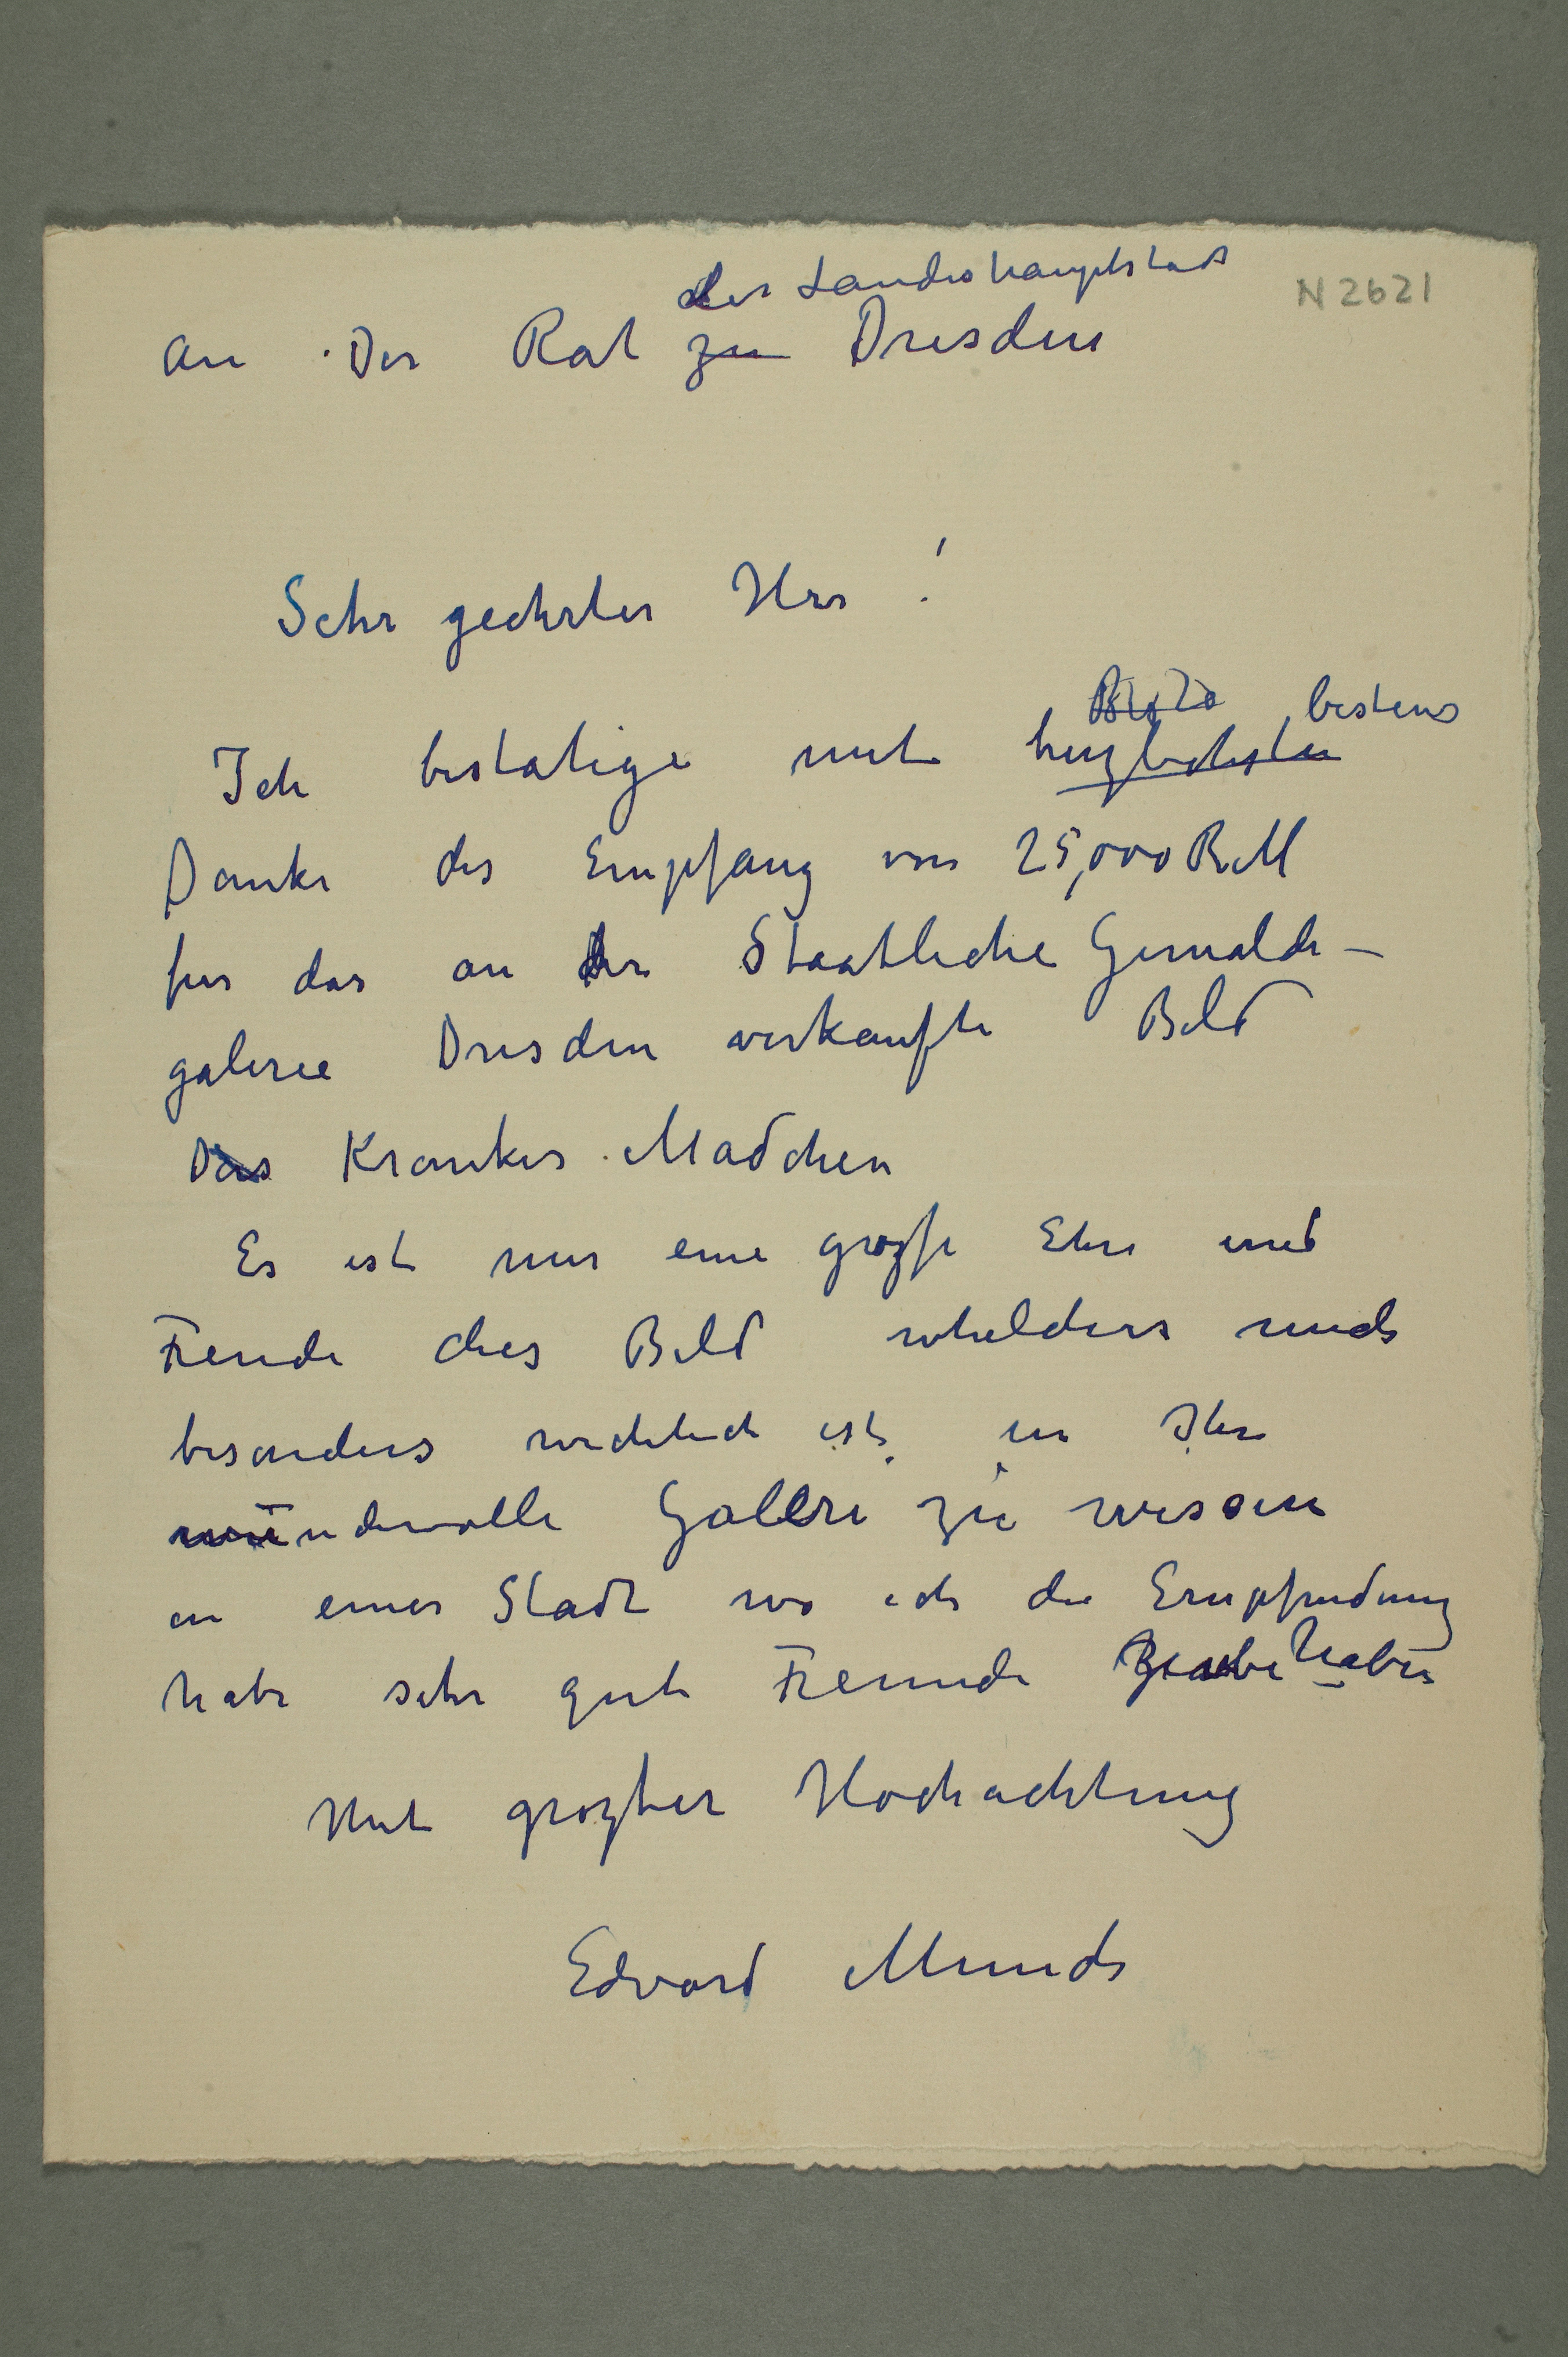 der Landeshauptstadt
N 2621
an Der Rat zu Dresden
Sehr geehrter Herr !
bestens
Ich bestatige mit herzlichsten
Danke des Empfang von 25,000 RM
fur das an der Staatliche Gemalde–
galerie Dresden verkaufte Bild
Das Kranker Madchen
Es ist mir eine grozse Ehre und
Freude dies Bild welches mich
besonders wichtich ist, in Ihre
wundervolle Gallerie zu wissen
in einer Stadt wo ich die Empfindung
habe sehr gute Freunde haben
Mit grozter Hochachtung
Edvard Munch